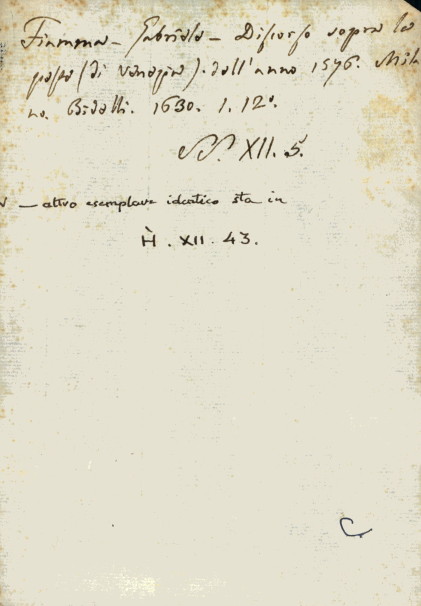 Fiamma – Gabriele – Discorso sopra la
peste (di Venezia). dell'anno 1576. Mila
no. Bidelli. 1630. 1. 12º.
SS. XII. 5.
– altro esemplare identico sta in
H̀. XII. 43.
C.